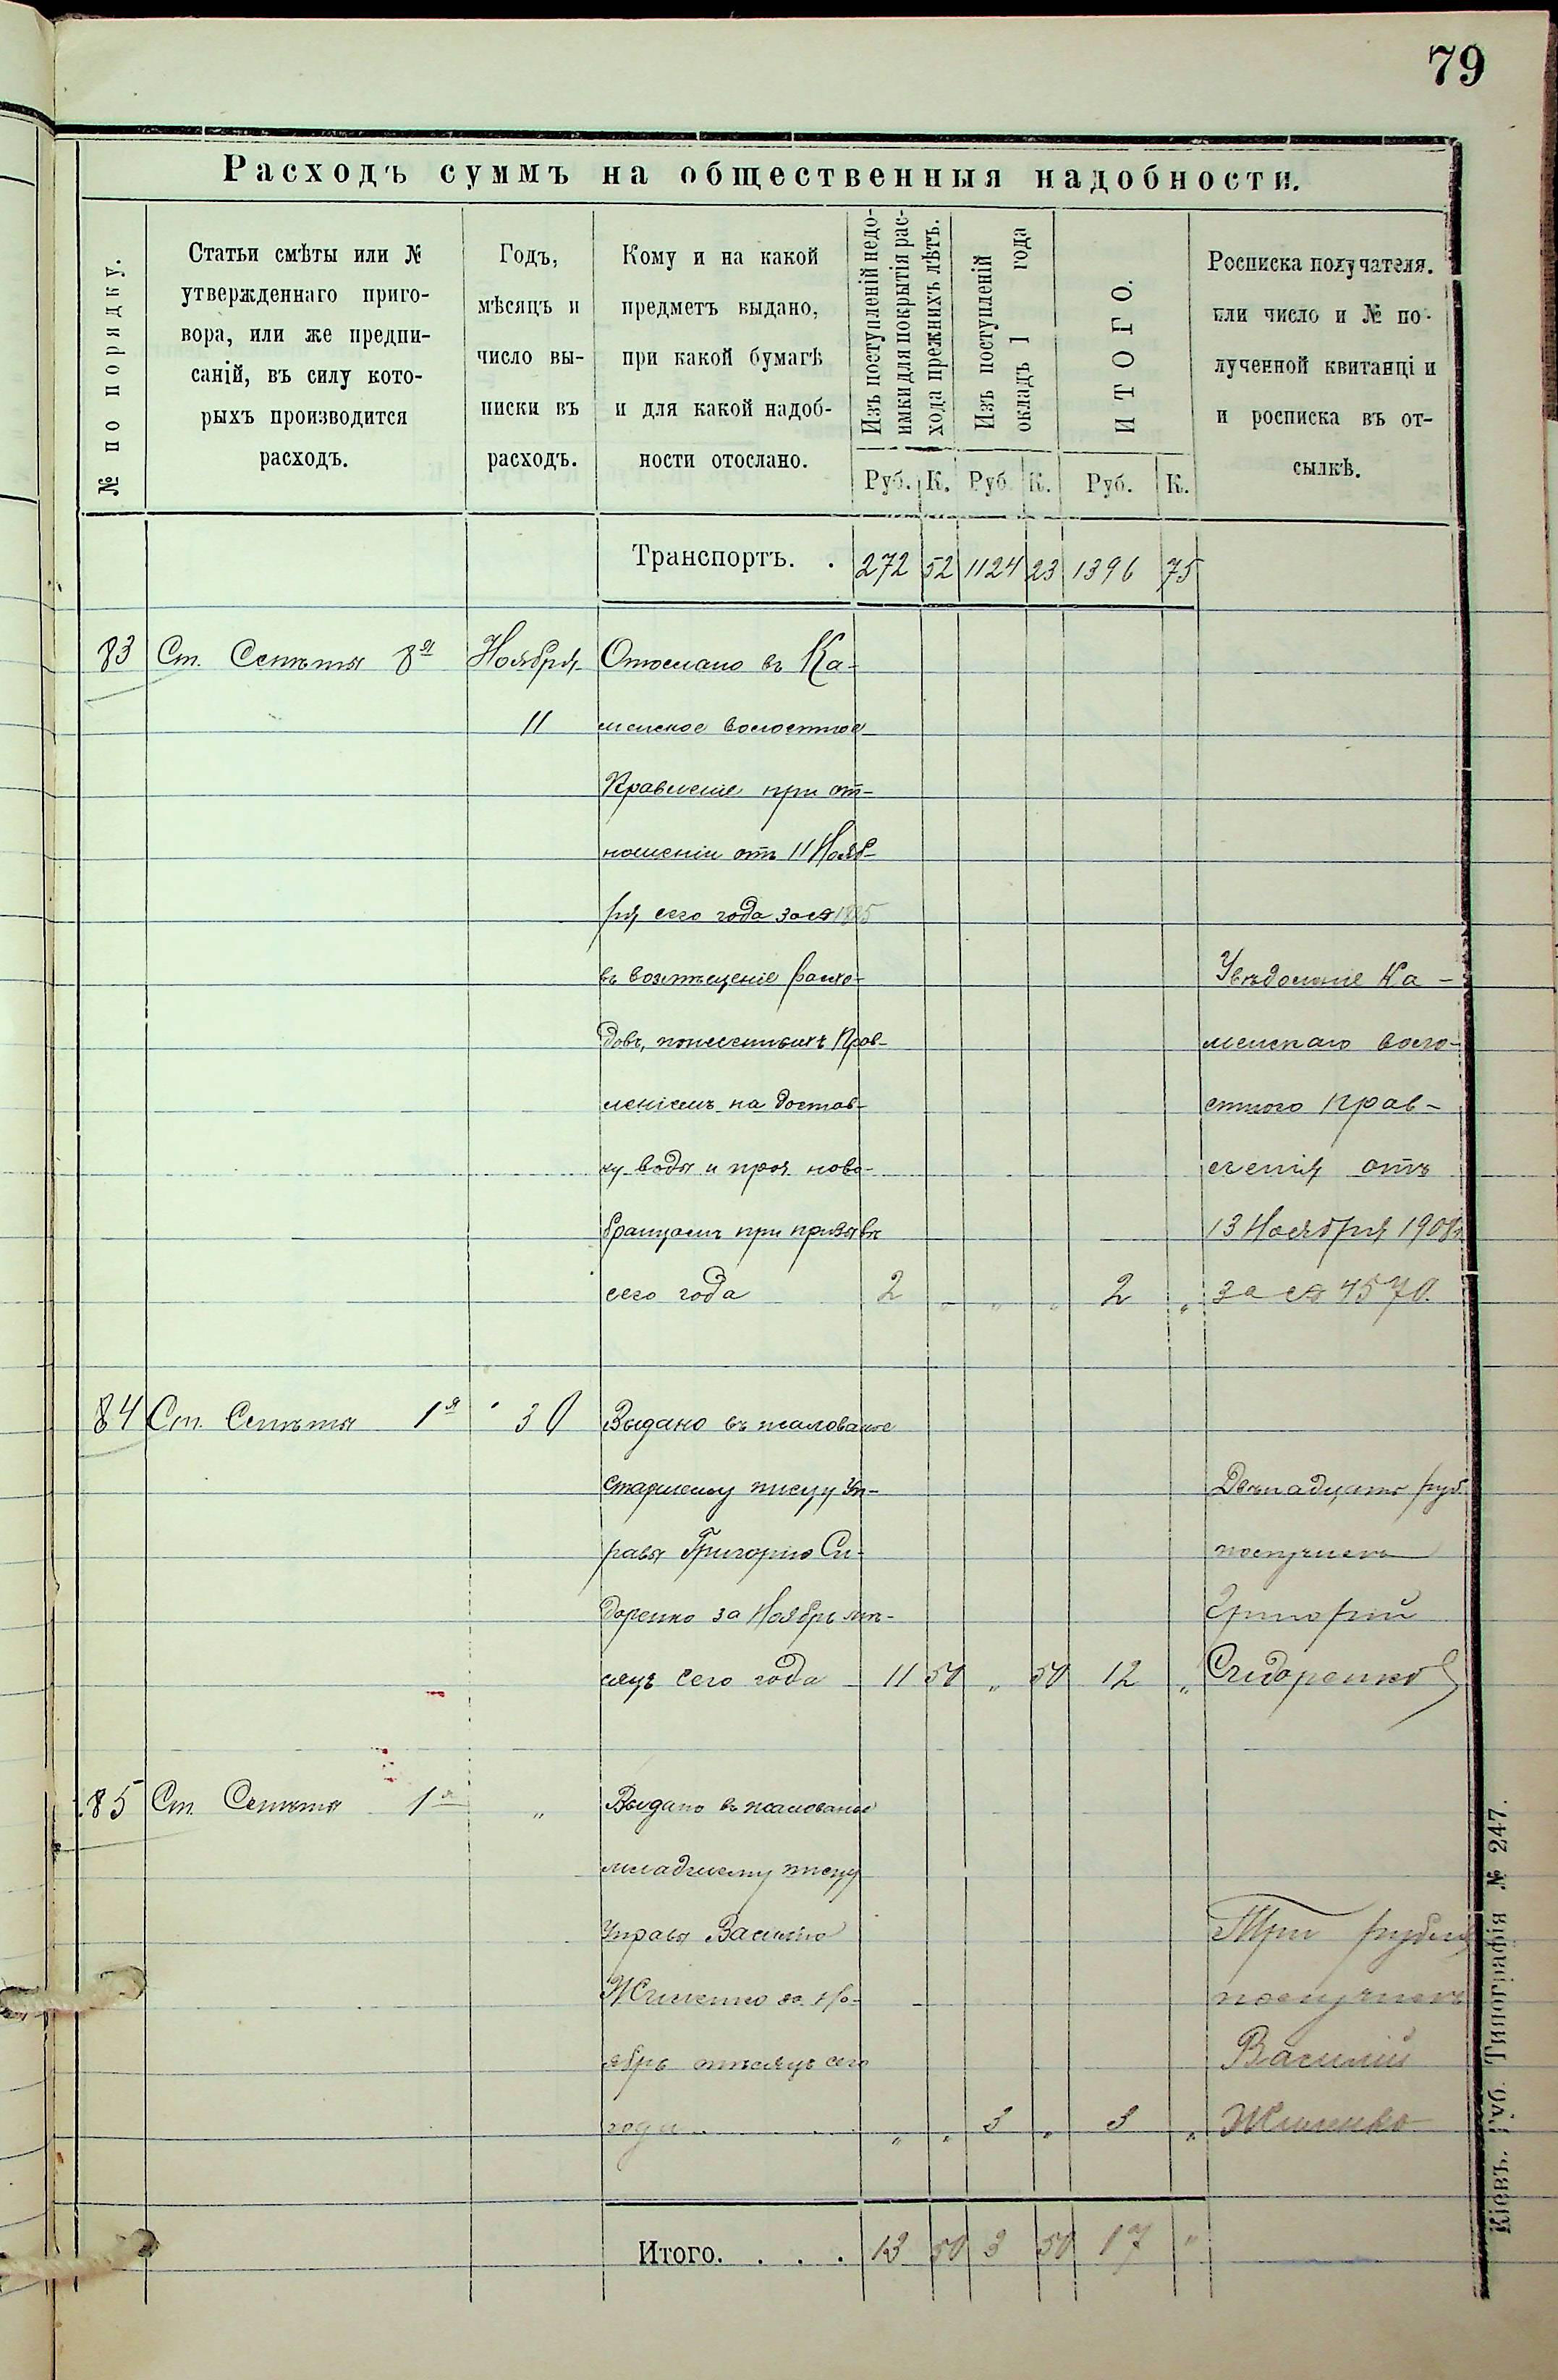 79
Расходъ суммъ на общественныя надобности.
№ по порядку.
Статьи смѣты или №
утвержденнаго приго-
вора, или же предпи-
саній, въ силу кото-
рыхъ производится
расходъ.
Годъ,
мѣсяцъ и
число вы-
писки въ
расходъ.
Кому и на какой
предметъ выдано,
при какой бумагѣ
и для какой надоб-
ности отослано.
Изъ поступленій недо-
имки для покрытія рас-
хода прежнихъ лѣтъ.
Изъ поступленій
окладъ 1 года
ИТОГО.
Росписка получателя.
или число и № по-
лученной квитанціи
и росписка въ от-
сылкѣ.
Руб. К. Руб. К. Руб. К.
Транспортъ. . 272 52 1124 23 1396 75
83 Ст. Смѣты 8я Ноября Отослано въ Ка-
11 менское волостное
Правленіе при от-
ношеніи отъ 11 Нояб-
ря сего года за №
въ возмѣщеніе расхо-
довъ, понесенныхъ Прав-
леніемъ на достав-
ку воды и проч. ново-
бранцамъ при призывѣ
сего года 2 „ „ „ 2 „
Увѣдомленіе Ка-
менскаго воло-
стного Прав-
ленія отъ
13 Ноября 1908 г.
за № 4570.
84 Ст. Смѣты 1я 30 Выдано въ жалованье
старшему писцу Уп-
равы Григорію Си-
доренко за Ноябрь мѣ-
сяцъ сего года 11 50 „ 50 12 „
Двѣнадцать руб.
получилъ
Григорій
Сидоренко
85 Ст. Смѣты 1я „ Выдано въ жалованье
младшему писцу
Управы Василію
за Но-
ябрь мѣсяцъ сего
года „ „ 3 „ 3 „
Три рубля
получилъ
Василій
Итого. . . . 13 50 3 50 17 „
Кіевъ. Губ. Типографія № 247.